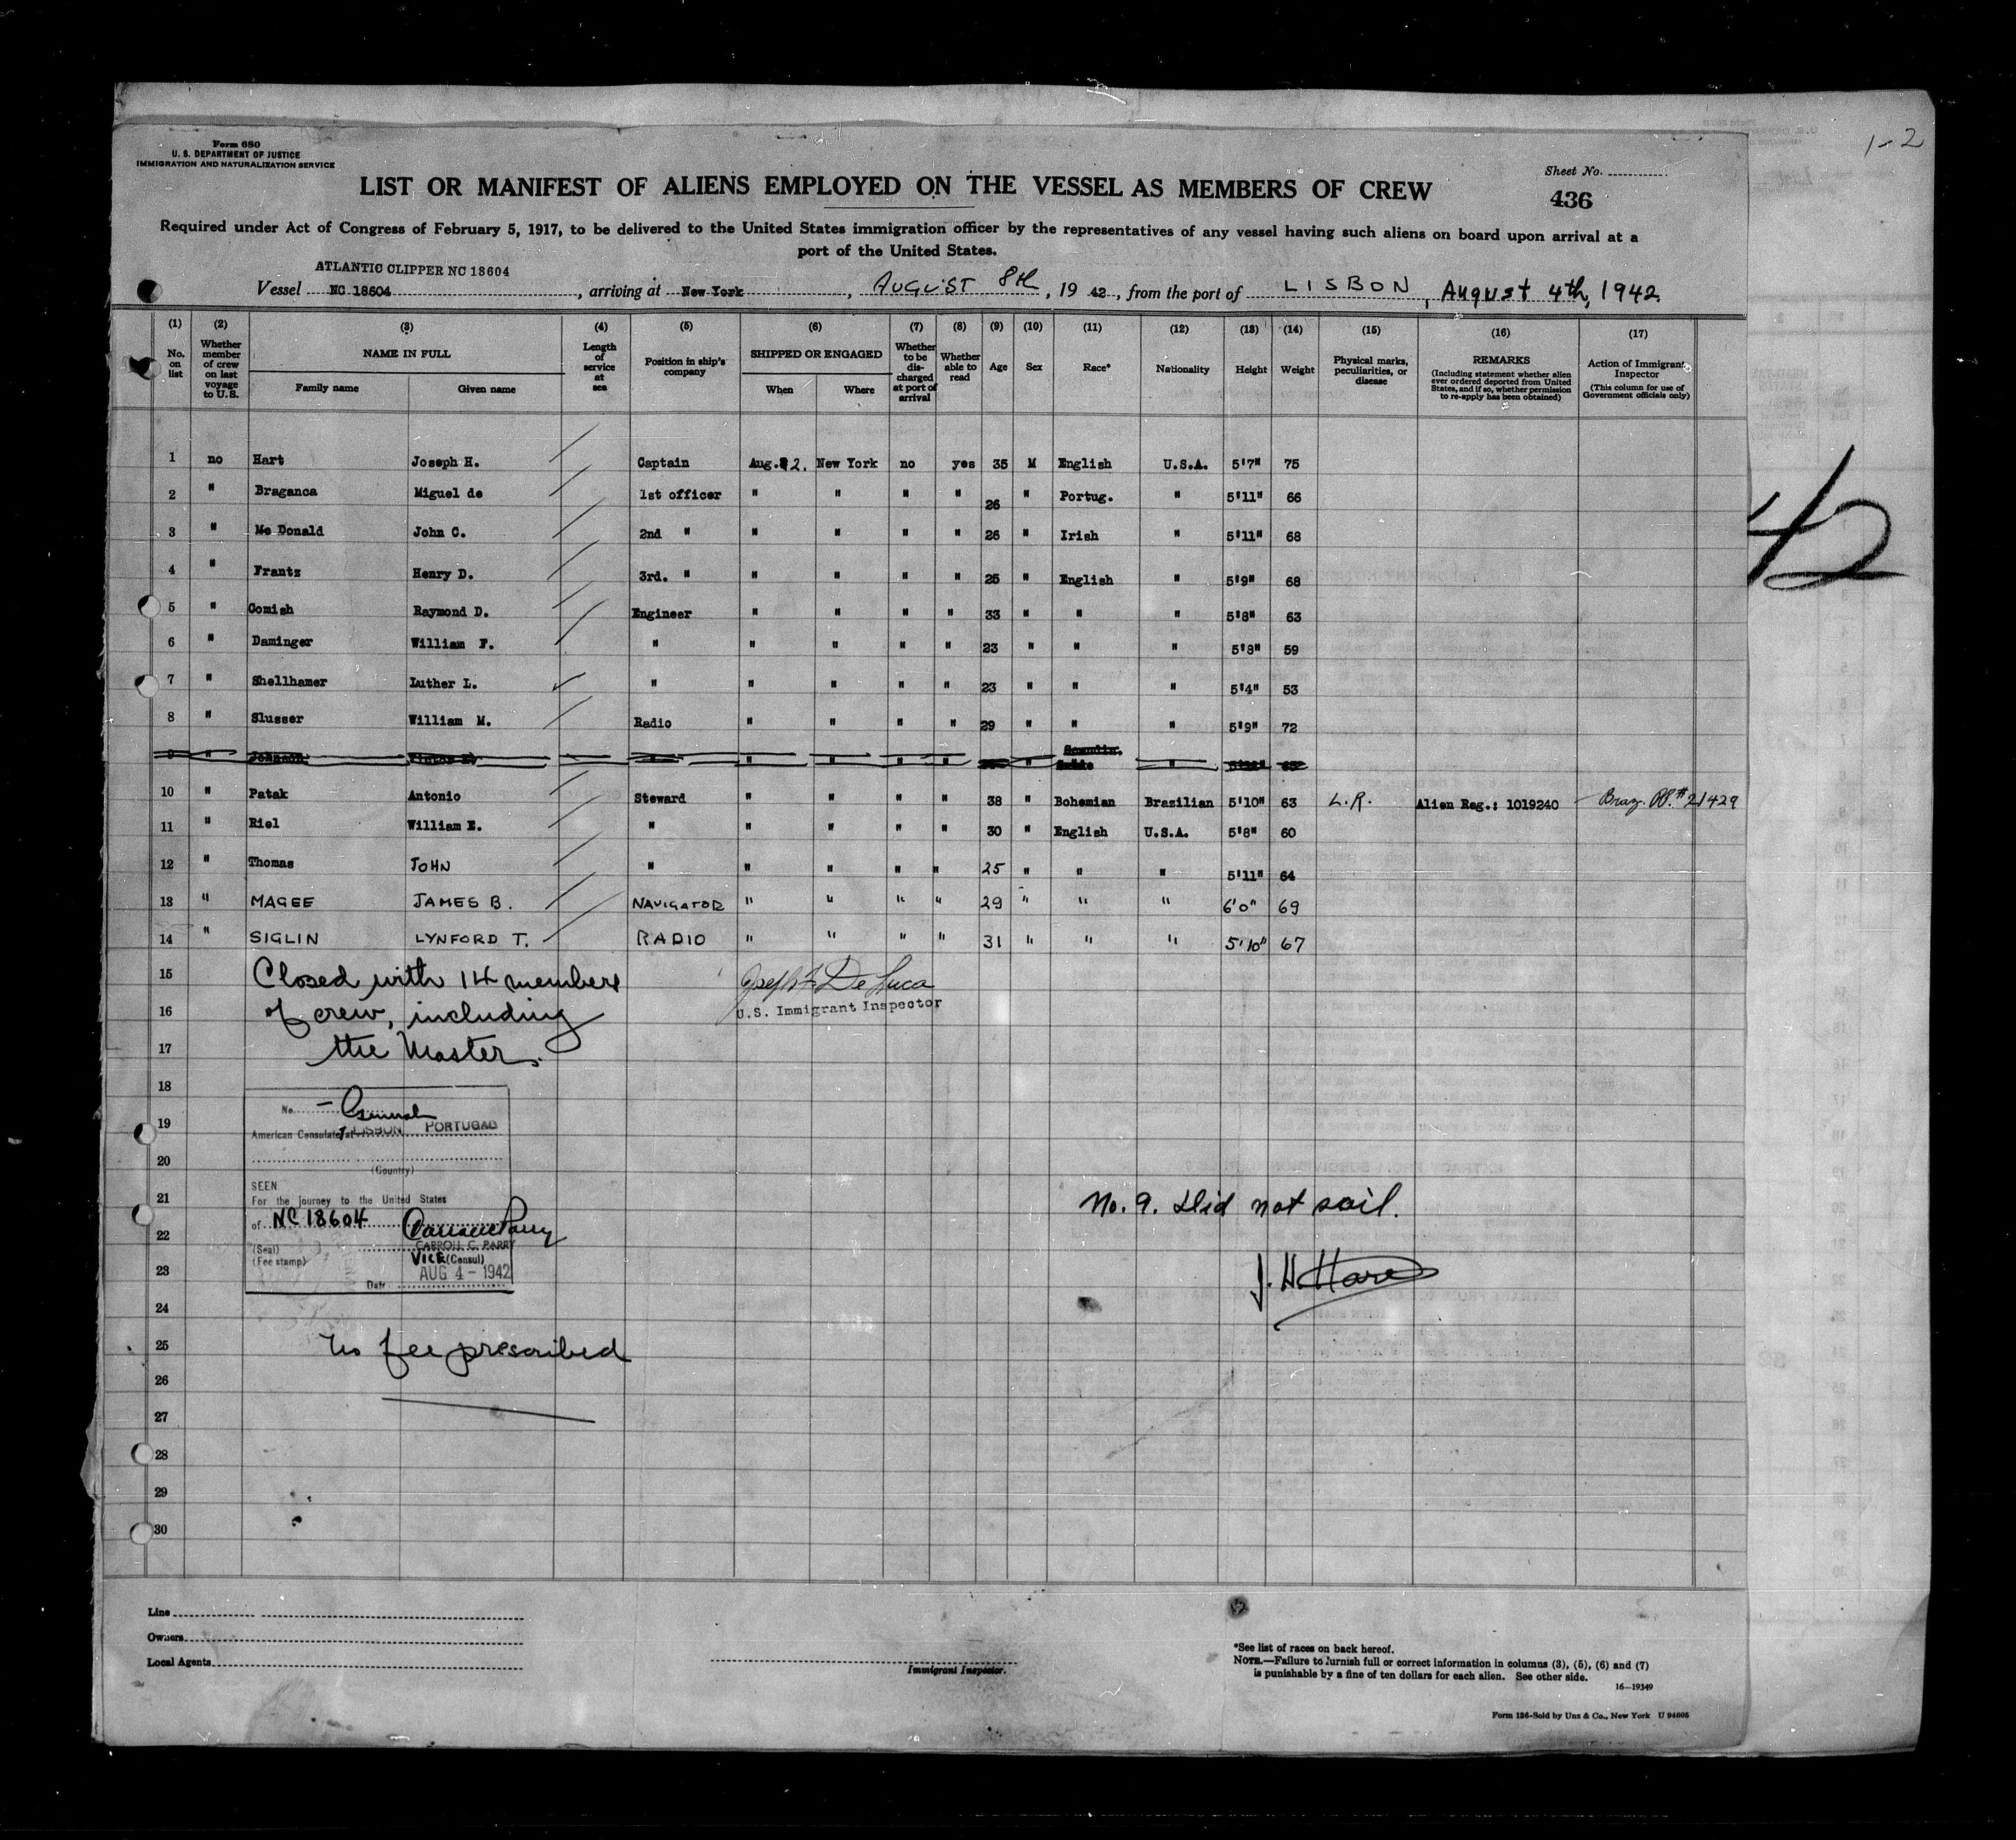 1-2
Form 680
U. S. DEPARTMENT OF JUSTICE
IMMIGRATION AND NATURALIZATION SERVICE
Sheet No.
436
LIST OR MANIFEST OF ALIENS EMPLOYED ON THE VESSEL AS MEMBERS OF CREW
Required under Act of Congress of February 5, 1917, to be delivered to the United States immigration officer by the representatives of any vessel having such aliens on board upon arrival at a
port of the United States.
ATLANTIC CLIPPER NC 18604
Vessel NC 18604, arriving at New York, AUGUST 8th, 19 42, from the port of LISBON, August 4th, 1942
(1) (2) (3) (4) (5) (6) (7) (8) (9) (10) (11) (12) (13) (14) (15) (16) (17)
No. on list
Whether member of crew on last voyage to U.S.
NAME IN FULL
Family name Given name
Length of service at sea
Position in ship's company
SHIPPED OR ENGAGED
When Where
Whether to be discharged at port of arrival
Whether able to read
Age
Sex
Race*
Nationality
Height
Weight
Physical marks, peculiarities, or disease
REMARKS
(Including statement whether alien ever ordered deported from United States, and if so, whether permission to re-apply has been obtained)
Action of Immigrant Inspector
(This column for use of Government officials only)
1 no Hart Joseph H. Captain Aug. 2. New York no yes 35 M English U.S.A. 5'7" 75
2 " Braganca Miguel de 1st officer " " " " 26 " Portug. " 5'11" 66
3 " Mc Donald John C. 2nd " " " " " 26 " Irish " 5'11" 68
4 " Frantz Henry D. 3rd. " " " " " 25 " English " 5'9" 68
5 " Comish Raymond D. Engineer " " " " 33 " " " 5'8" 63
6 " Daminger William F. " " " " " 23 " " " 5'8" 59
7 " Shellhamer Luther L. " " " " " 23 " " " 5'4" 53
8 " Slusser William M. Radio " " " " 29 " " " 5'9" 72
9 " Johnson " " " " " " "
10 " Patak Antonio Steward " " " " 38 " Bohemian Brazilian 5'10" 63 L.R. Alien Reg.: 1019240 Braz. PP. # 21429
11 " Riel William E. " " " " " 30 " English U.S.A. 5'8" 60
12 " Thomas JOHN " " " " " 25 " " " 5'11" 64
13 " MAGEE JAMES B. NAVIGATOR " " " " 29 " " " 6'0" 69
14 " SIGLIN LYNFORD T. RADIO " " " " 31 " " " 5'10" 67
42
15 Closed with 14 members
16 of crew, including
17 the Master.
Joseph F De Luca
U.S. Immigrant Inspector
18
No. — General
19
American Consulate at LISBON PORTUGAL
20
(Country)
SEEN
21
For the journey to the United States
of NC 18604
22
CARROLL C. PARRY
(Seal)
(Fee stamp)
VICE (Consul)
23
AUG 4 - 1942
Date
No. 9. Did not sail.
J. H. Hart
24
25 No fee prescribed
26
27
28
29
30
Line
Owners
Local Agents
Immigrant Inspector.
*See list of races on back hereof.
NOTE.—Failure to furnish full or correct information in columns (3), (5), (6) and (7)
is punishable by a fine of ten dollars for each alien. See other side.
16—19349
Form 136-Sold by Unz & Co., New York U 94605